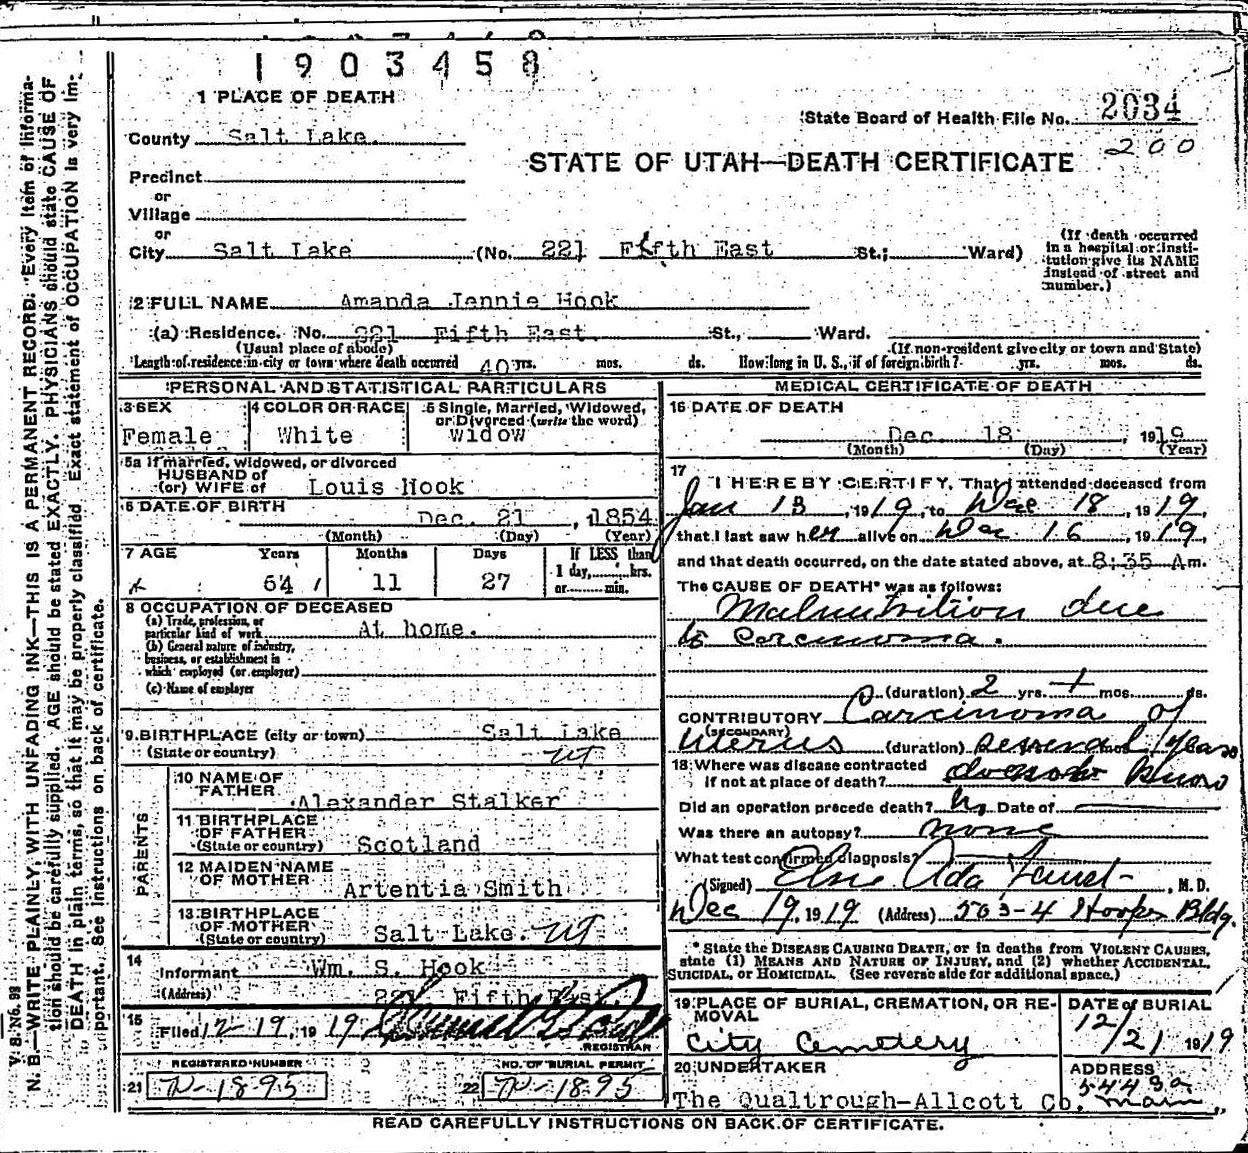 1903458
1 PLACE OF DEATH
State Board of Health File No. 2034
200
County Salt Lake.
STATE OF UTAH—DEATH CERTIFICATE
Precinct
or
Village
or
City Salt Lake (No. 221 Fifth East St.; Ward)
(If death occurred in a hospital or institution give its NAME instead of street and number.)
2 FULL NAME Amanda Jennie Hook
(a) Residence. No. 221 Fifth East St., Ward.
(Usual place of abode) (If non-resident give city or town and State)
Length of residence in city or town where death occurred 40 yrs. mos. ds. How long in U. S., if of foreign birth? yrs. mos. ds.
PERSONAL AND STATISTICAL PARTICULARS
3 SEX
Female
4 COLOR OR RACE
White
5 Single, Married, Widowed, or Divorced (write the word)
widow
5a If married, widowed, or divorced
HUSBAND of
(or) WIFE of Louis Hook
6 DATE OF BIRTH
Dec. 21, 1854
(Month) (Day) (Year)
7 AGE Years Months Days If LESS than
1 day, hrs.
or min.
64 11 27
8 OCCUPATION OF DECEASED
(a) Trade, profession, or
particular kind of work At home.
(b) General nature of industry,
business, or establishment in
which employed (or employer)
(c) Name of employer
9 BIRTHPLACE (city or town) Salt Lake
(State or country) UT
PARENTS
10 NAME OF
FATHER Alexander Stalker
11 BIRTHPLACE
OF FATHER
(State or country) Scotland
12 MAIDEN NAME
OF MOTHER Artentia Smith
13 BIRTHPLACE
OF MOTHER
(State or country) Salt Lake. UT
14
Informant Wm. S. Hook
(Address) 221 Fifth East.
15
Filed 12-19, 1919
REGISTRAR
REGISTERED NUMBER NO. OF BURIAL PERMIT
21 N-1895 22 N-1895
MEDICAL CERTIFICATE OF DEATH
16 DATE OF DEATH
Dec. 18, 1919
(Month) (Day) (Year)
17
I HEREBY CERTIFY, That I attended deceased from
Jan 13, 1919, to Dec 18, 1919,
that I last saw her alive on Dec. 16, 1919,
and that death occurred, on the date stated above, at 8:35 A m.
The CAUSE OF DEATH* was as follows:
Malnutrition due
to Carcinoma.
(duration) 2 yrs. + mos. ds.
CONTRIBUTORY Carcinoma of
(SECONDARY)
Uterus (duration) several years
18 Where was disease contracted
if not at place of death? know
Did an operation precede death? No Date of
Was there an autopsy? none
What test confirmed diagnosis?
(Signed) Elsie Ada Faust, M. D.
Dec 19, 1919 (Address) 503-4 Hooper Bldg.
* State the DISEASE CAUSING DEATH, or in deaths from VIOLENT CAUSES,
state (1) MEANS AND NATURE OF INJURY, and (2) whether ACCIDENTAL,
SUICIDAL, or HOMICIDAL. (See reverse side for additional space.)
19 PLACE OF BURIAL, CREMATION, OR REMOVAL
City Cemetery
DATE of BURIAL
12/21 1919
20 UNDERTAKER
The Qualtrough-Allcott Co.
ADDRESS
Main
READ CAREFULLY INSTRUCTIONS ON BACK OF CERTIFICATE.
V. S. No. 99
N. B.—WRITE PLAINLY, WITH UNFADING INK—THIS IS A PERMANENT RECORD. Every item of information should be carefully supplied. AGE should be stated EXACTLY. PHYSICIANS should state CAUSE OF DEATH in plain terms, so that it may be properly classified. Exact statement of OCCUPATION is very important. See instructions on back of certificate.